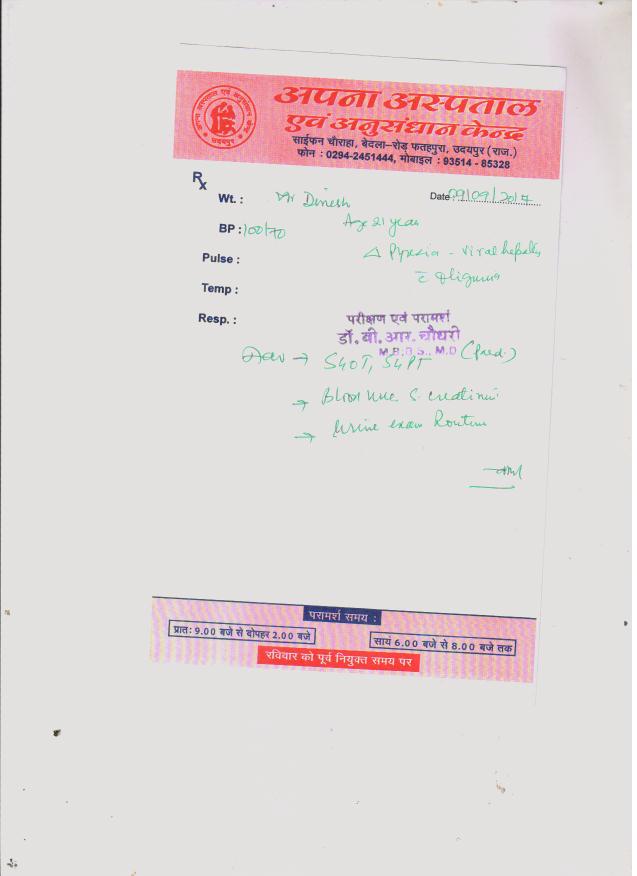 अपना अस्पताल
एवं अनुसंधान केन्द्र
साईफन चौराहा, बेदला-रोड़ फतहपुरा, उदयपुर (राज.)
फोन : 0294-2451444, मोबाइल : 93514 - 85328
Rx
Wt. : Mr Dinesh
Date 09/09/2017
BP : 100/70 Age 21 year
Pulse : Δ Pyrexia - Viral hepatitis
Temp :
Resp. :
परीक्षण एवं परामर्श
डॉ. बी. आर. चौधरी
M.B.B.S., M.D (Med.)
Adv → SGOT, SGPT
→ Blood Urea S. creatinine
→ Urine exam Routine
परामर्श समय :
प्रातः 9.00 बजे से दोपहर 2.00 बजे
सायं 6.00 बजे से 8.00 बजे तक
रविवार को पूर्व नियुक्त समय पर